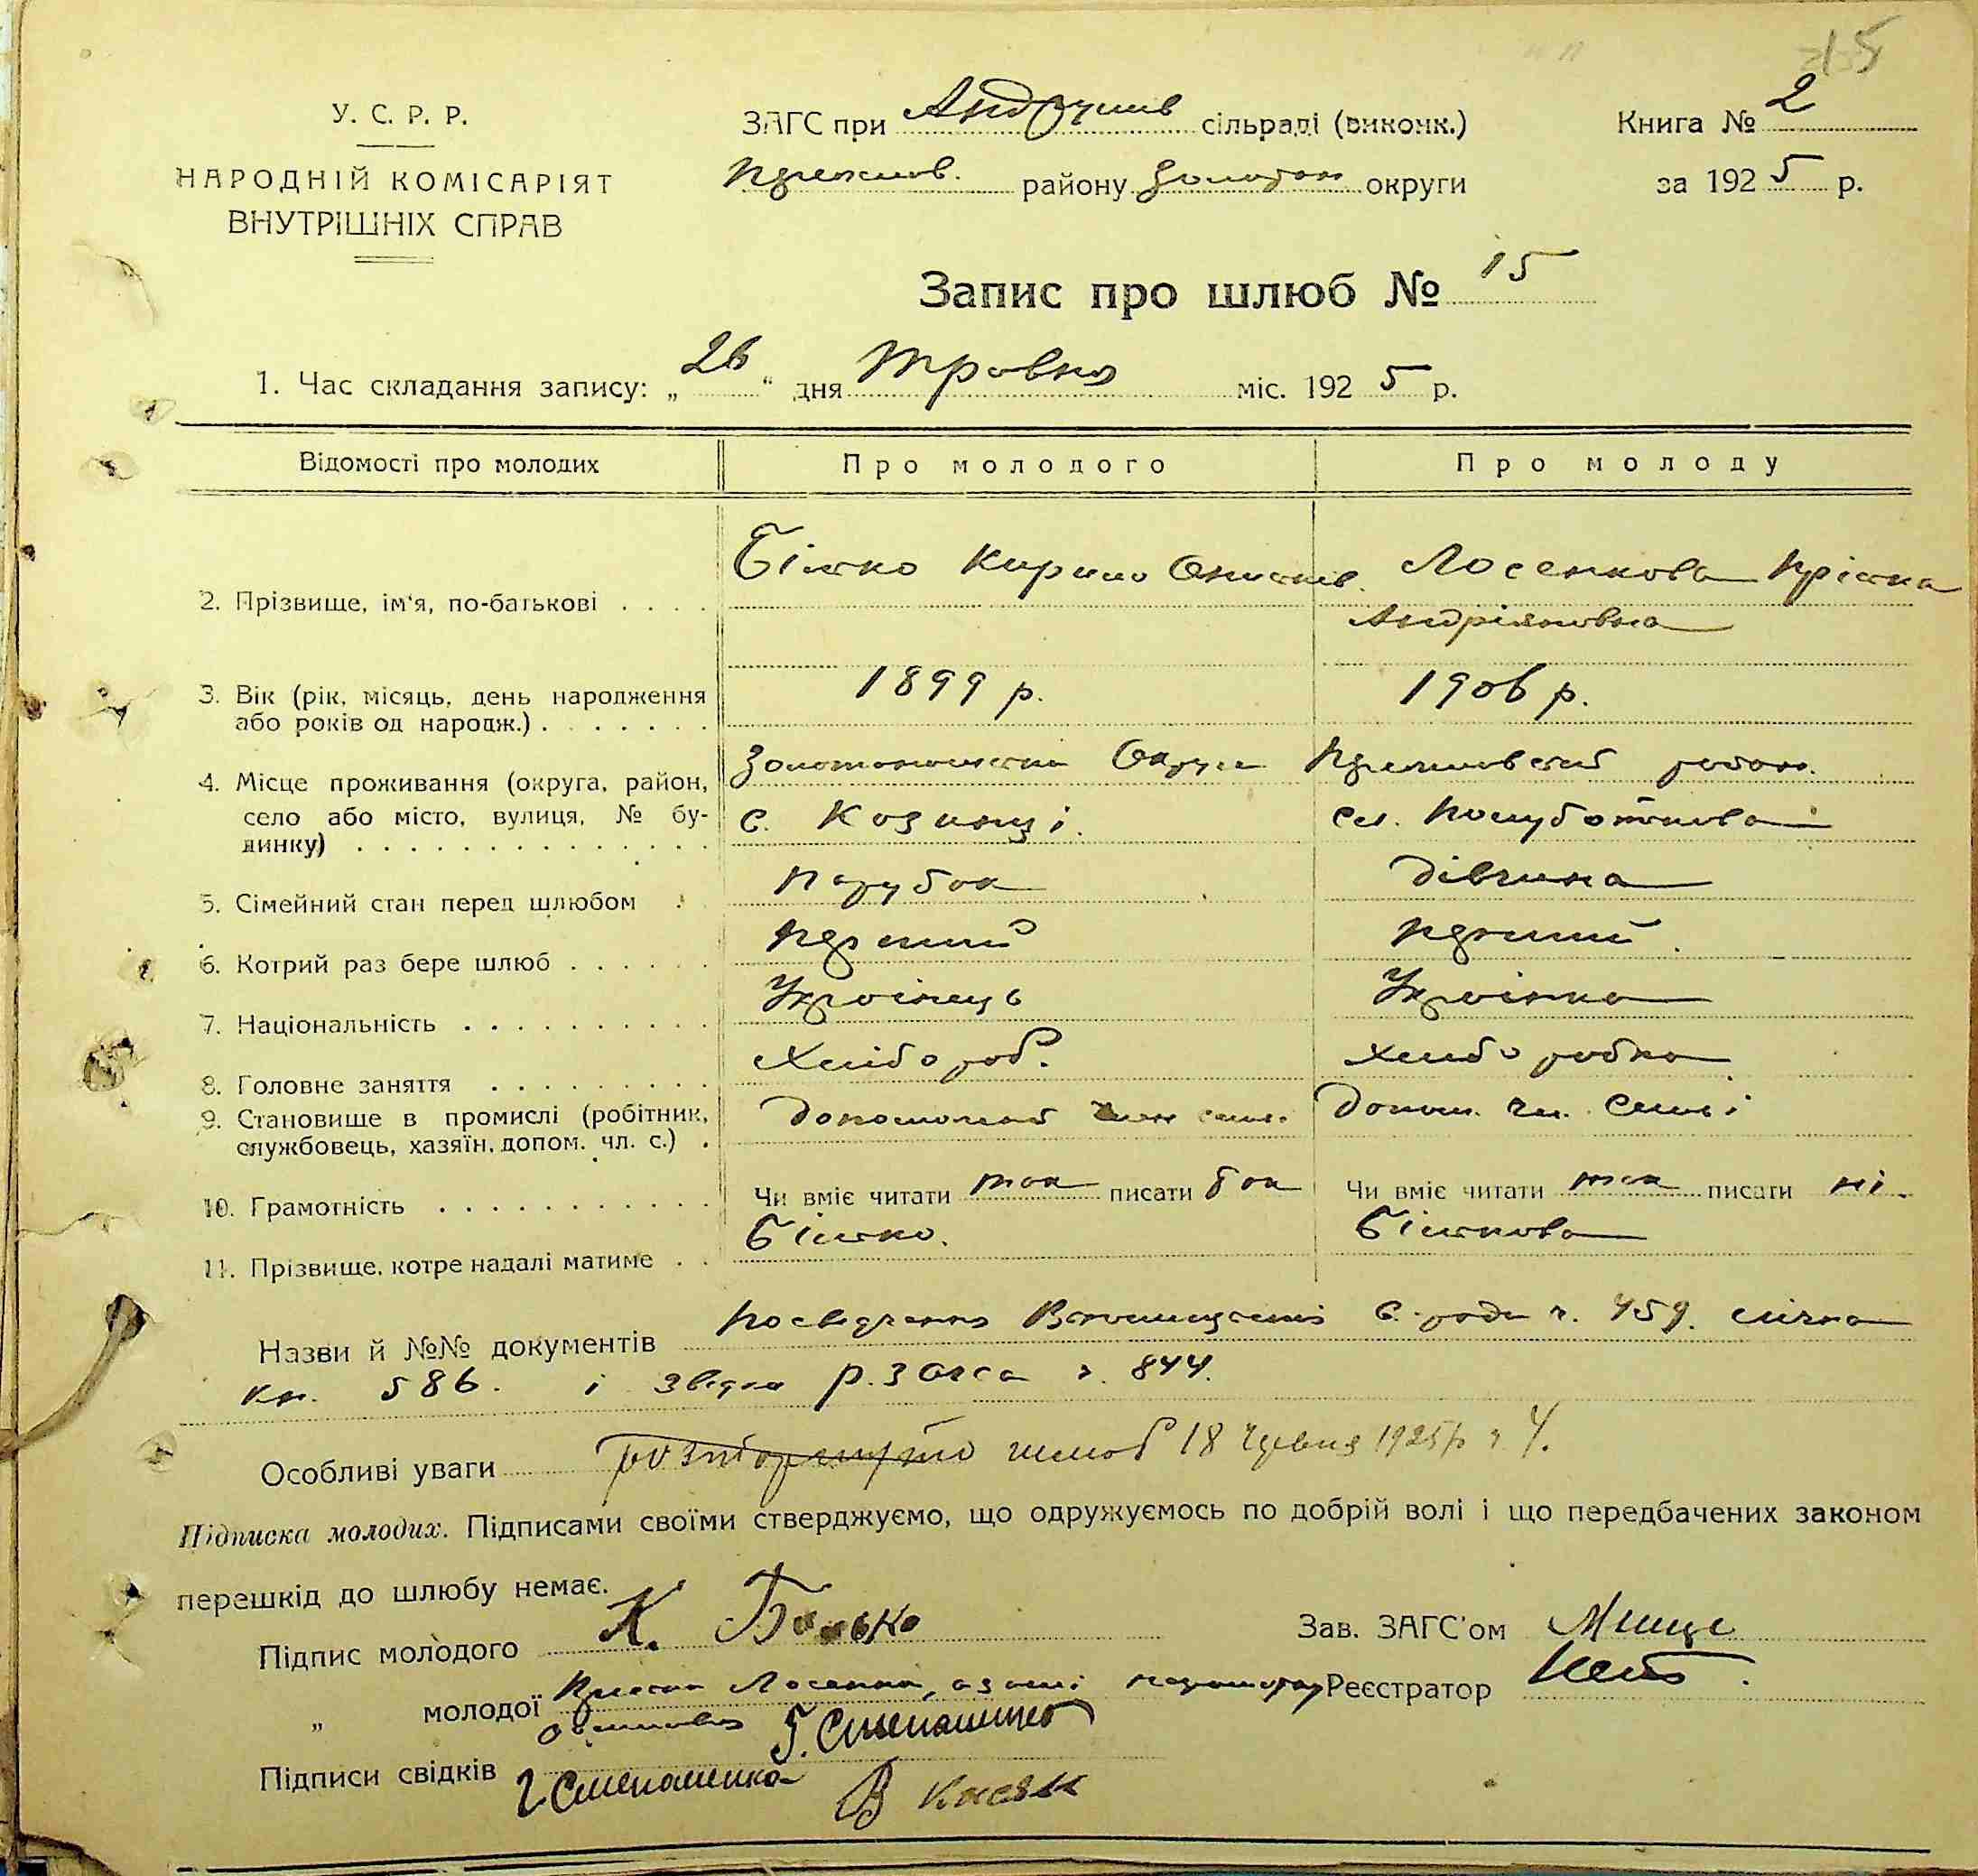 15
У. С. Р. Р.
НАРОДНІЙ КОМІСАРІЯТ
ВНУТРІШНІХ СПРАВ
ЗАГС при Андрушів сільраді (виконк.)
району Золотон округи
Книга № 2
за 1925 р.
Запис про шлюб № 15
1. Час складання запису: „26“ дня Травня міс. 1925 р.
Відомості про молодих Про молодого Про молоду
2. Прізвище, ім'я, по-батькові . . . . Білько Кирило Лосенкова Пріська
Андріяновна
3. Вік (рік, місяць, день народження або років од народж.) . . . . . . . 1899 р. 1906 р.
4. Місце проживання (округа, район, село або місто, вулиця, № будинку) . . . . . . . . . . . . . . Золотоношська Округа район.
с. Козинці. сл.
5. Сімейний стан перед шлюбом . Парубок Дівчина
6. Котрий раз бере шлюб . . . . . . перший перший
7. Національність . . . . . . . . . . Українець Українка
8. Головне заняття . . . . . . . . . Хлібороб. хліборобка
9. Становище в промислі (робітник, службовець, хазяїн, допом. чл. с.) . Допом. чл. семьі
10. Грамотність . . . . . . . . . . . Чи вміє читати так писати так Чи вміє читати так писати ні.
11. Прізвище, котре надалі матиме . . Білько. Бількова
Назви й №№ документів Посвідчення с. ради ч. 459. січня
кн. 586. і р. загса ч. 844.
Особливі уваги розторгнуто шлюб 18 червня 1925 р ч 4.
Підписка молодих. Підписами своїми стверджуємо, що одружуємось по добрій волі і що передбачених законом
перешкід до шлюбу немає.
Підпис молодого К. Білько
Зав. ЗАГС'ом
„ молодої Пріська Лосенко, а за неї
Реєстратор
Г. Степаненко
Підписи свідків Г Степаненко В Кисяк